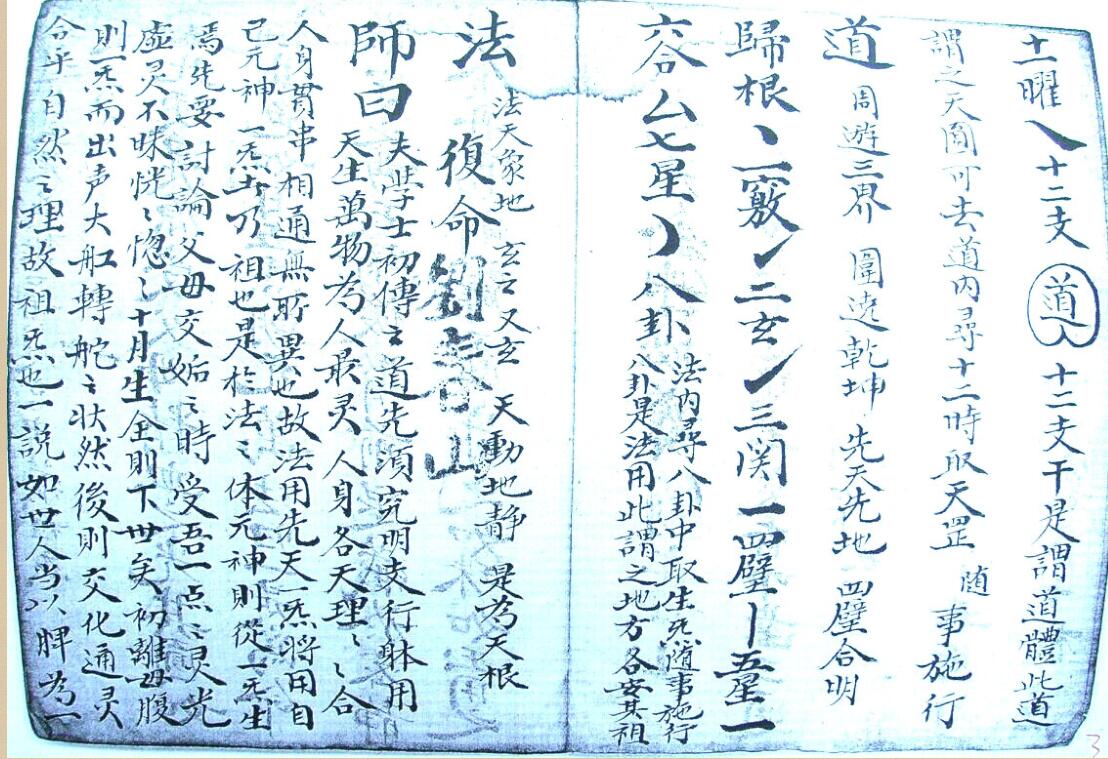 十一曜 乀 十二支 道人 十二支干是謂道體此道
謂之天圓可去道内尋十二時取天罡 随事施行
道 周遊三界 圍遶乾坤 先天先地 四壁合明
歸根 丶 一竅 丿 二玄 丿 三関 一 四壁 丨 五星 一
六合 厶 七星 八卦 法内尋八卦中取生炁随事施行
八卦是法用此謂之地方各安其祖
法 法天象地 玄之又玄 天動地静 是為天根
復命
師曰 夫學士初傳之道先須究明支行躰用
天生萬物為人最灵人身各天理〻合
人身貫串相通無所異也故法用先天一炁將用自
己元神一炁 乃祖也是於法之体元神則從一炁生
焉先要討論父母交姤之時受吾一点之灵光
虚灵不昧恍〻惚〻十月生全則下世矣初離母腹
則一炁而出声大舡轉舵之状然後則交化通灵
合乎自然之理故祖炁也一説如世人当以脾為一
3